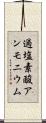 過塩素酸ア
ンモニウム